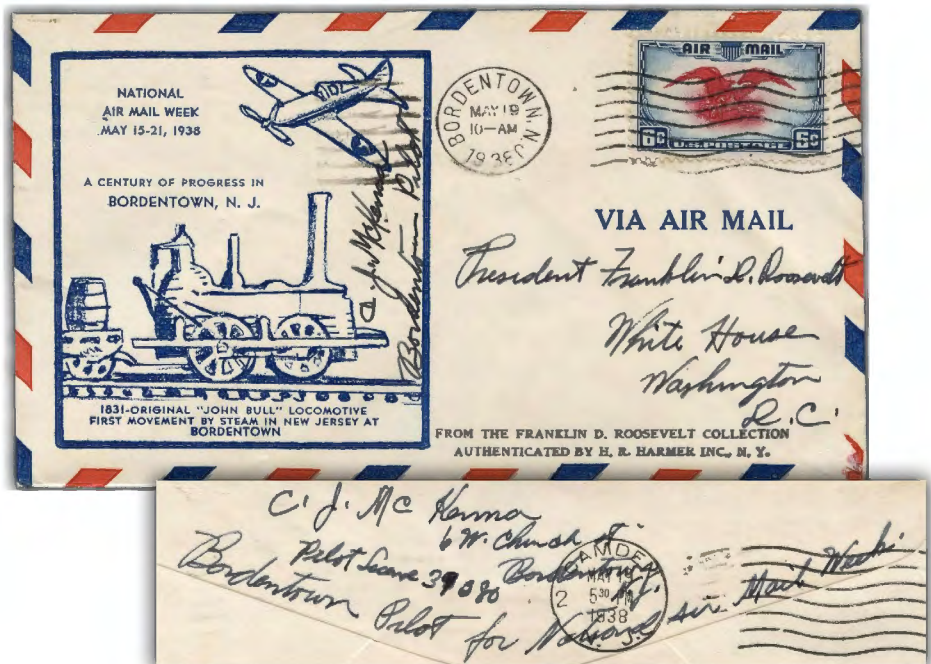 NATIONAL
AIR MAIL WEEK
MAY 15-21, 1938
A CENTURY OF PROGRESS IN
BORDENTOWN, N. J.
1831-ORIGINAL "JOHN BULL" LOCOMOTIVE
FIRST MOVEMENT BY STEAM IN NEW JERSEY AT
BORDENTOWN
C. J. McKenna
Bordentown Pilot
BORDENTOWN, N.J.
MAY 19
10-AM
1938
AIR MAIL
6¢ 6¢
U.S. POSTAGE
VIA AIR MAIL
President Franklin D. Roosevelt
White House
Washington
D.C.
FROM THE FRANKLIN D. ROOSEVELT COLLECTION
AUTHENTICATED BY H. R. HARMER INC., N. Y.
C. J. Mc Kenna
6 W. Church St
Bordentown
N.J.
Pilot 39080
Bordentown Pilot for National Air Mail Week
CAMDEN
MAY 19
2 530 PM
1938
N. J.